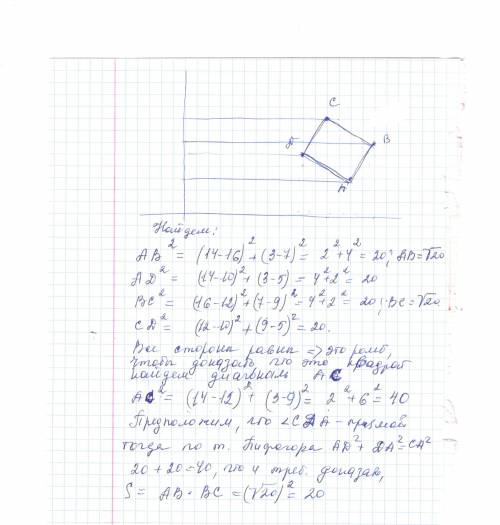 C
D
B
A
Найдем:
AB² = (14-16)² + (3-7)² = 2² + 4² = 20; AB = √20
AD² = (14-10)² + (3-5) = 4² + 2² = 20
BC² = (16-12)² + (7-9)² = 4² + 2² = 20; BC = √20
CD² = (12-10)² + (9-5)² = 20.
Все стороны равны => это ромб,
чтобы доказать что это квадрат
найдем диагональ AC
AC² = (14-12)² + (3-9)² = 2² + 6² = 40
Предположим, что ∠CDA - прямой
тогда по т. Пифагора AD² + DA² = CA²
20 + 20 = 40, что и треб. доказать,
S = AB · BC = (√20)² = 20